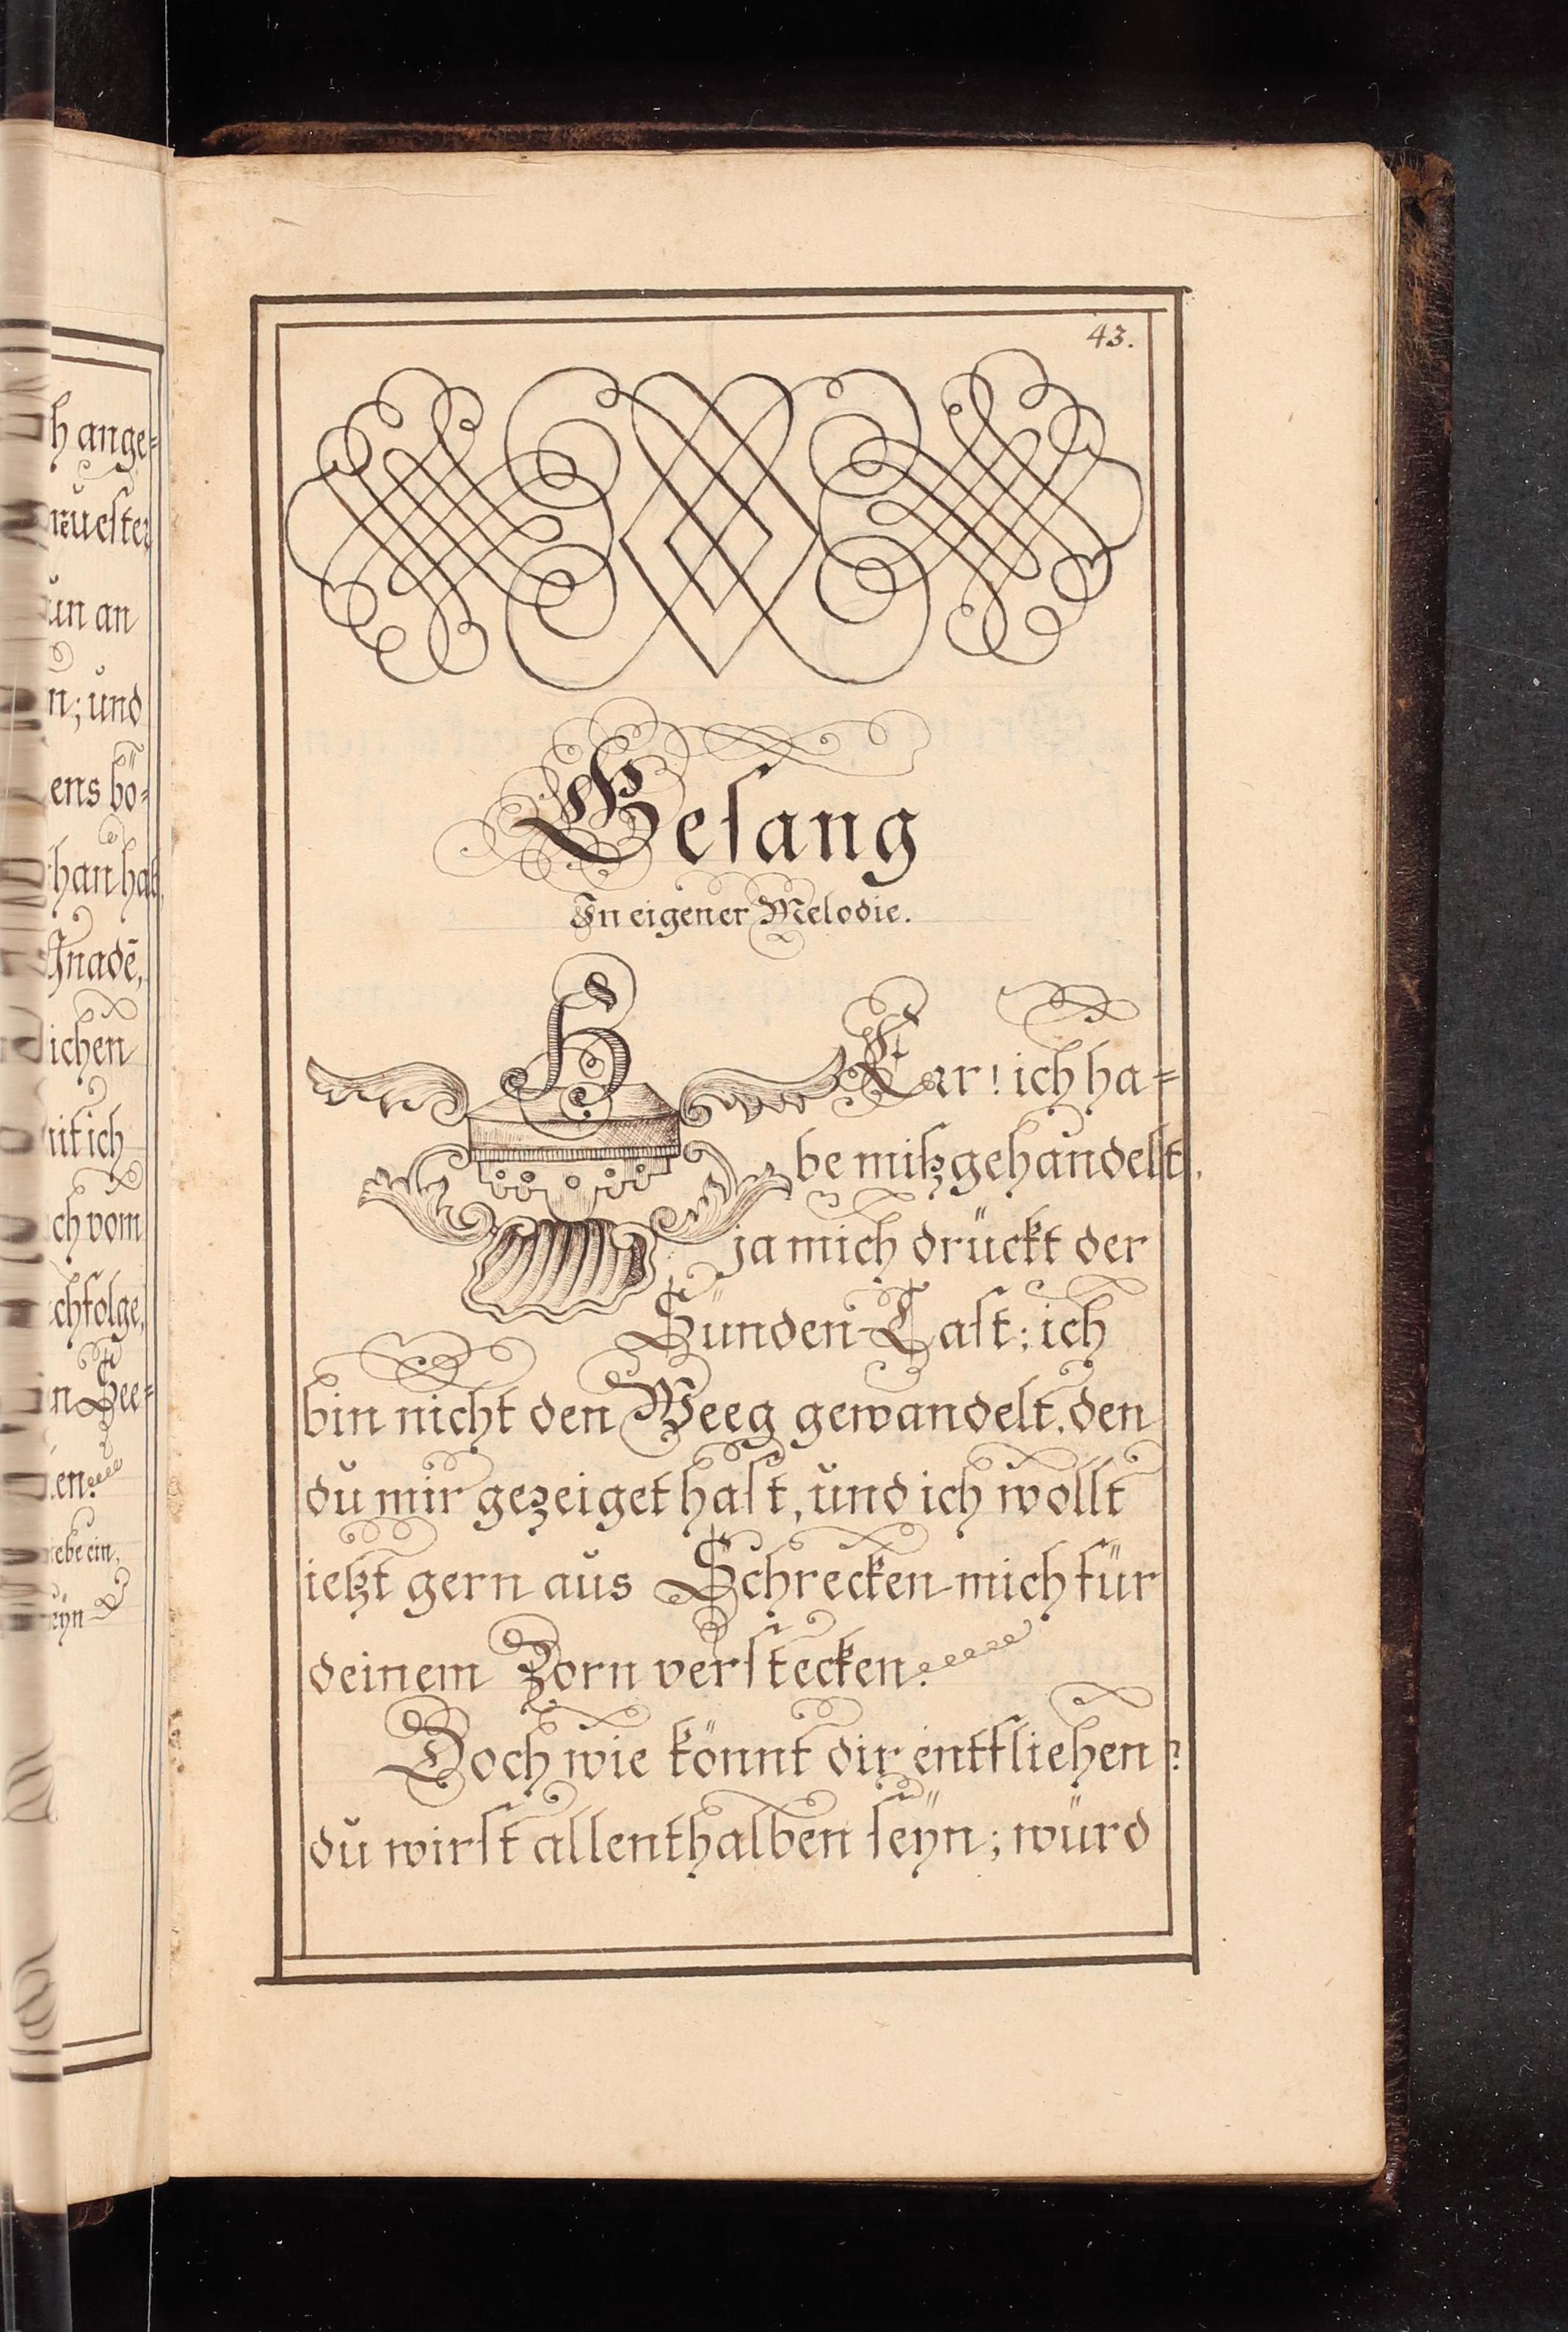 h ange-
ũester
ũn an
n; ũnd
ens bö-
han hab
Gnadē,
ichen
mit ich
ch vom
chfolge,
n See-
en.
iebe ein,
seÿn
43.
Gesang
In eigener Melodie.
HErr! ich ha-
be mißgehandelt,
ja mich drückt der
Sünden-Last; ich
bin nicht den Weeg gewandelt, den
dũ mir gezeiget hast, ũnd ich wollt
ietzt gern aũs Schrecken mich für
deinem Zorn verstecken.
Doch wie könnt dir entfliehen?
dũ wirst allenthalben seÿn; würd